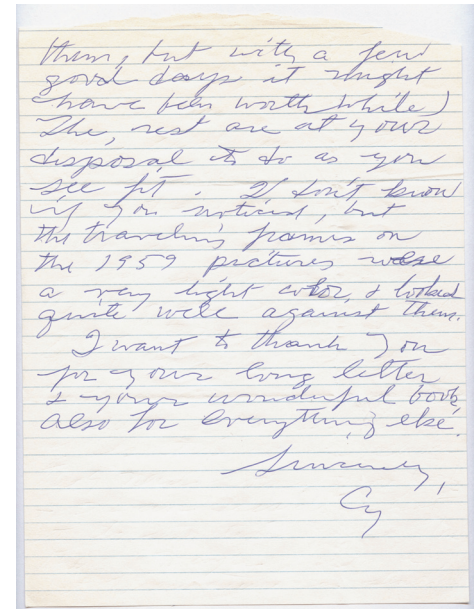 them, but with a few
good days it might
have been worth while)
The, rest are at your
disposal to do as you
see fit. I don't know
if you noticed, but
the traveling frames on
the 1959 pictures were
a very light color, & looked
quite well against them.
I want to thank you
for your long letter
& your wonderful book,
also for everything else.
Sincerely,
Cy